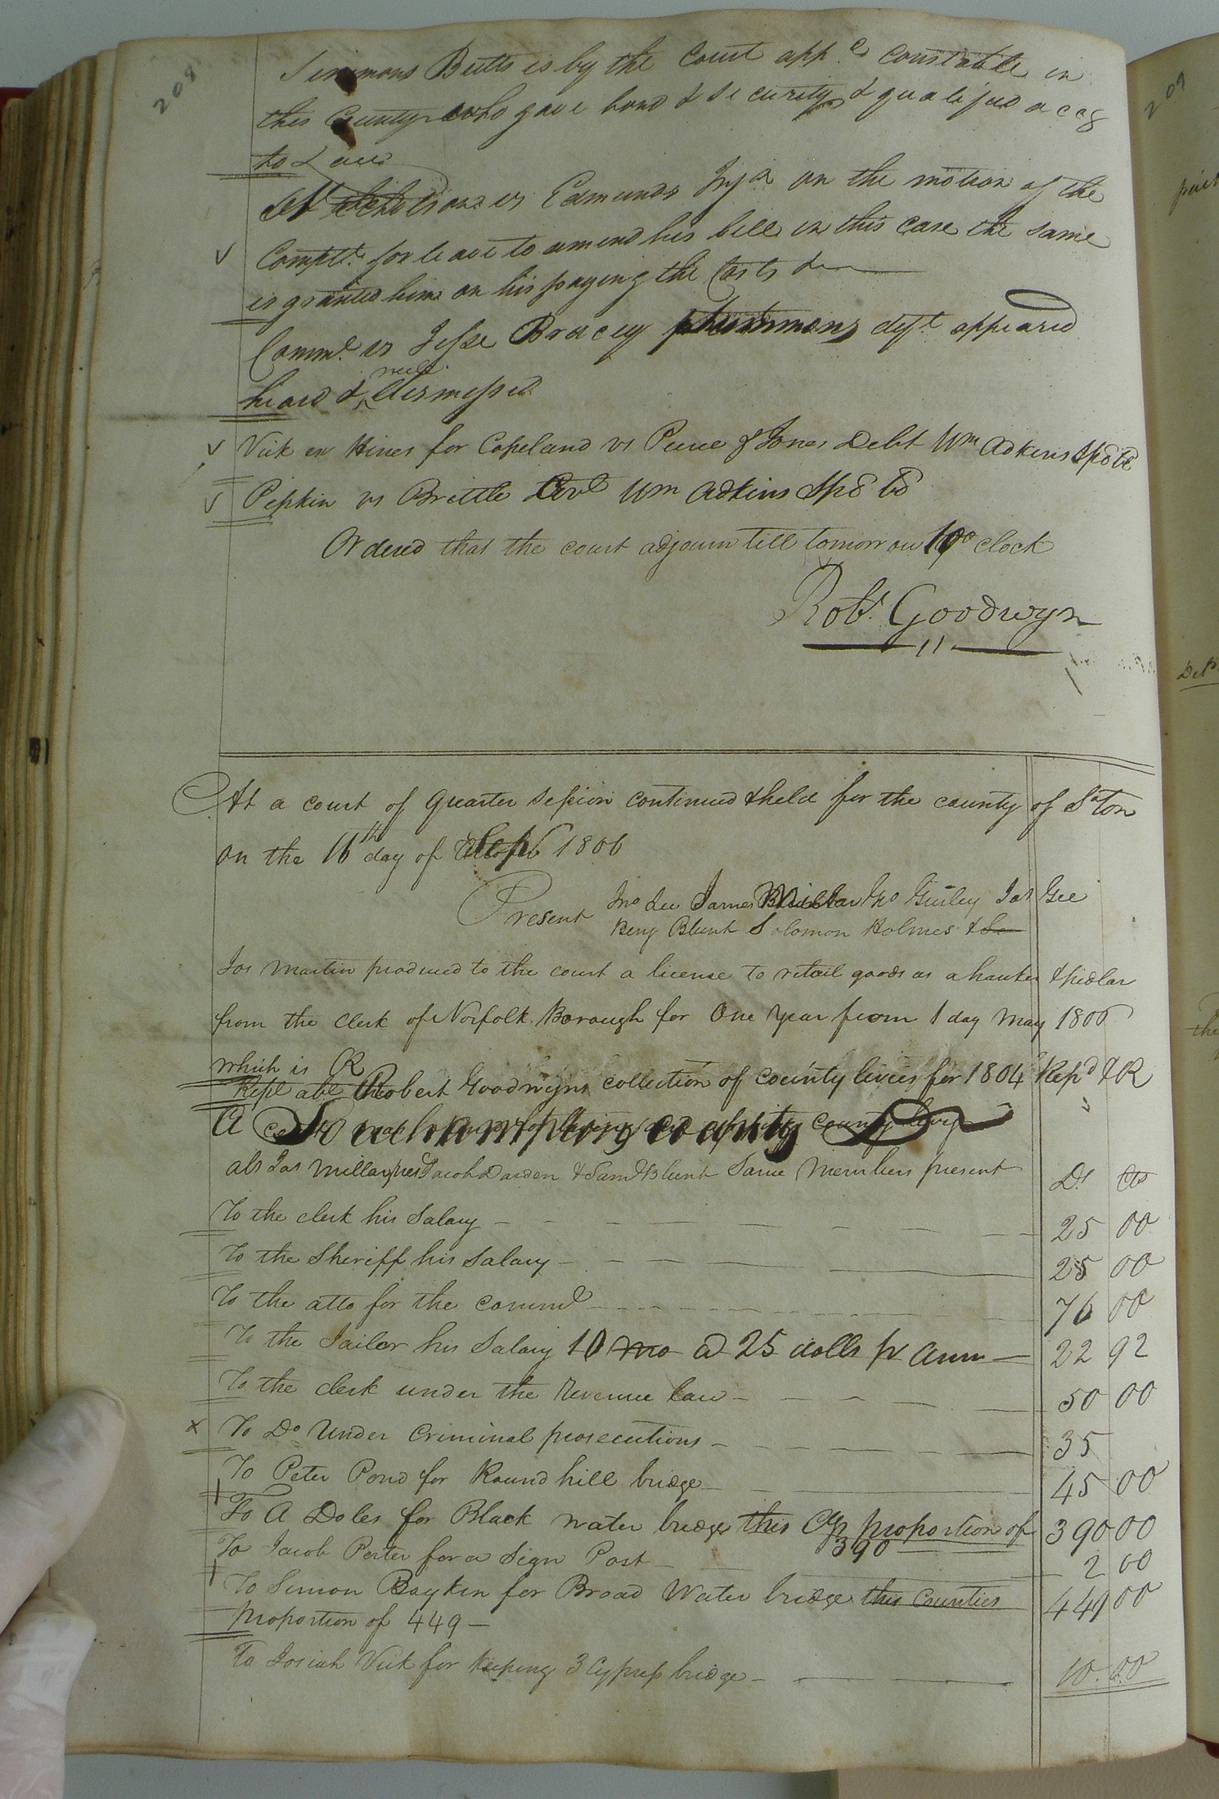 208
Simmons Butts is by the Court app.d Constable in
this County who gave bond & security & qualified accg
to Law
Nicholson vs Edmunds Inj.n on the motion of the
Complt. for leave to amend his bill in this case the same
is granted him on his paying the Costs &
Comm.l vs Jesse Bracey summons deft. appeared
heard & dismissed
Vick ex Hines for Copeland vs Purce & Jones Debt Wm Adkins Spe be
Pepkin vs Brittle Wm Adkins Spe be
Ordered that the court adjourn till tomorrow 10 o clock
Robt. Goodwyn
At a court of Quarter Session continued & held for the county of S'ton
on the 16th day of Sept 1806
Present Jno Lee James Millar Gurley Jas Gee
Benj Blunt Solomon Holmes &
Jos Martin produced to the court a license to retail goods as a hawker & pedlar
from the Clerk of Norfolk Borough for One Year from 1 day May 1806
which is R
Robert Goodwyns collection of county levies for 1804 Rep.d & R
Southampton county
abs Jas Millar pres Jacob Darden & Saml Blunt Same Members present
Ds Cts
To the clerk his Salary 25 00
To the Sheriff his Salary 25 00
To the atto for the comml 76 00
To the Jailor his Salary 10 mo @ 25 dolls pr Ann 22 92
To the clerk under the Revenue Law 50 00
x To Do Under Criminal prosecutions 35
To Peter Pond for Round hill bridge 45 00
To A Doles for Black water bridge this Cty proportion of 390 00
390
To Jacob Porter for a Sign Post 2 00
To Simon Boykin for Broad Water bridge this Counties 449 00
proportion of 449
To Josiah Vick for keeping 3 Cypress bridge 10.00
209
Deb